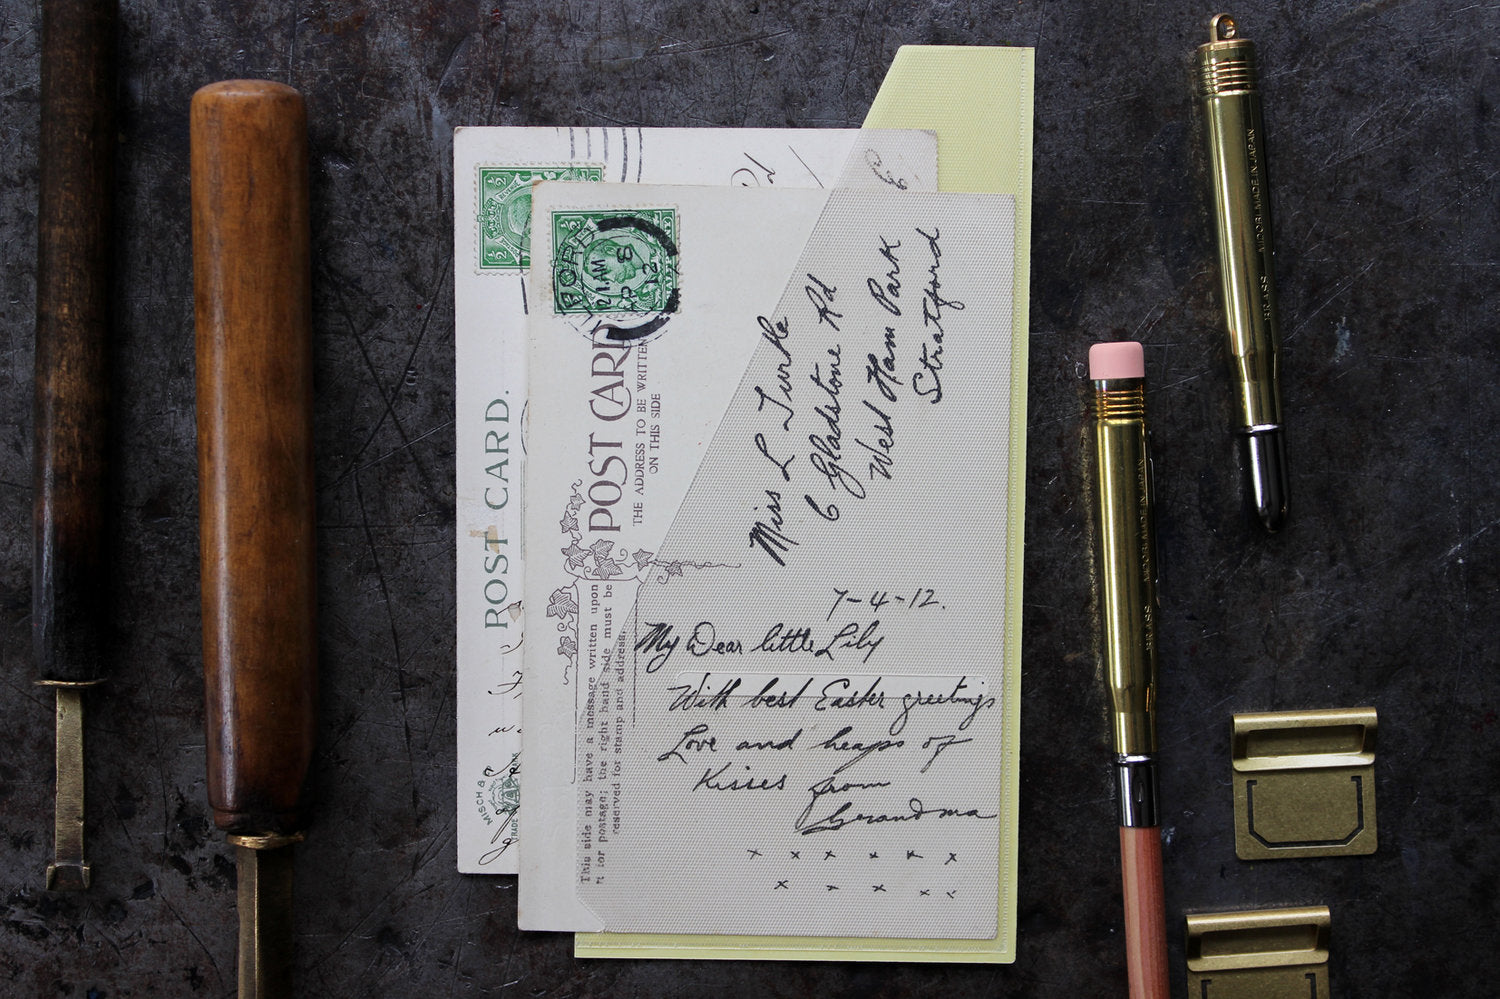 POST CARD.
MAISCH &
TRADE
½
½
½
½
12.AM
AP 8
12
POST CARD
THE ADDRESS TO BE WRITTEN
ON THIS SIDE
This side may have a message written upon
for postage; the right hand side must be
reserved for stamp and address.
Miss L Turtle
6 Gladstone Rd
West Ham Park
Stratford
7-4-12.
My Dear little Lily
With best Easter greetings
Love and heaps of
Kisses from
Grandma
x x x x x x
x x x x x
BRASS MIDORI MADE IN JAPAN
BRASS MIDORI MADE IN JAPAN